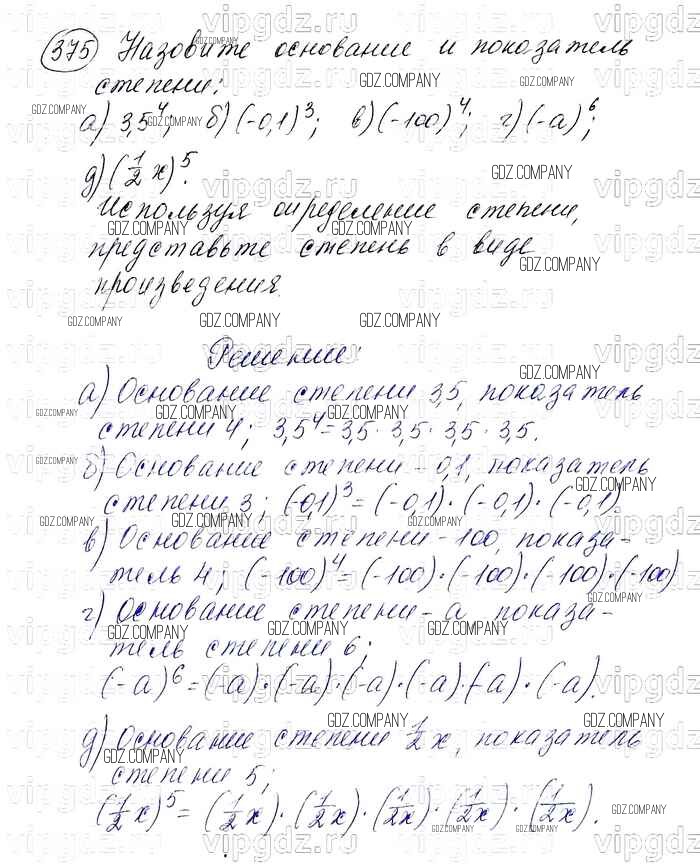 375 Назовите основание и показатель
степени:
а) 3,5⁴; б) (-0,1)³; в) (-100)⁴; г) (-а)⁶;
д) (1/2 x)⁵.
Используя определение степени,
представьте степень в виде
произведения.
Решение:
а) Основание степени 3,5, показатель
степени 4; 3,5⁴ = 3,5 · 3,5 · 3,5 · 3,5.
б) Основание степени -0,1, показатель
степени 3; (-0,1)³ = (-0,1) · (-0,1) · (-0,1).
в) Основание степени -100, показа-
тель 4; (-100)⁴ = (-100) · (-100) · (-100) · (-100)
г) Основание степени -а показа-
тель степени 6;
(-а)⁶ = (-а) · (-а) · (-а) · (-а) (-а) · (-а).
д) Основание степени 1/2 x, показатель
степени 5;
(1/2 x)⁵ = (1/2 x) · (1/2 x) · (1/2 x) · (1/2 x) · (1/2 x).
vipgdz.ru
GDZ.COMPANY